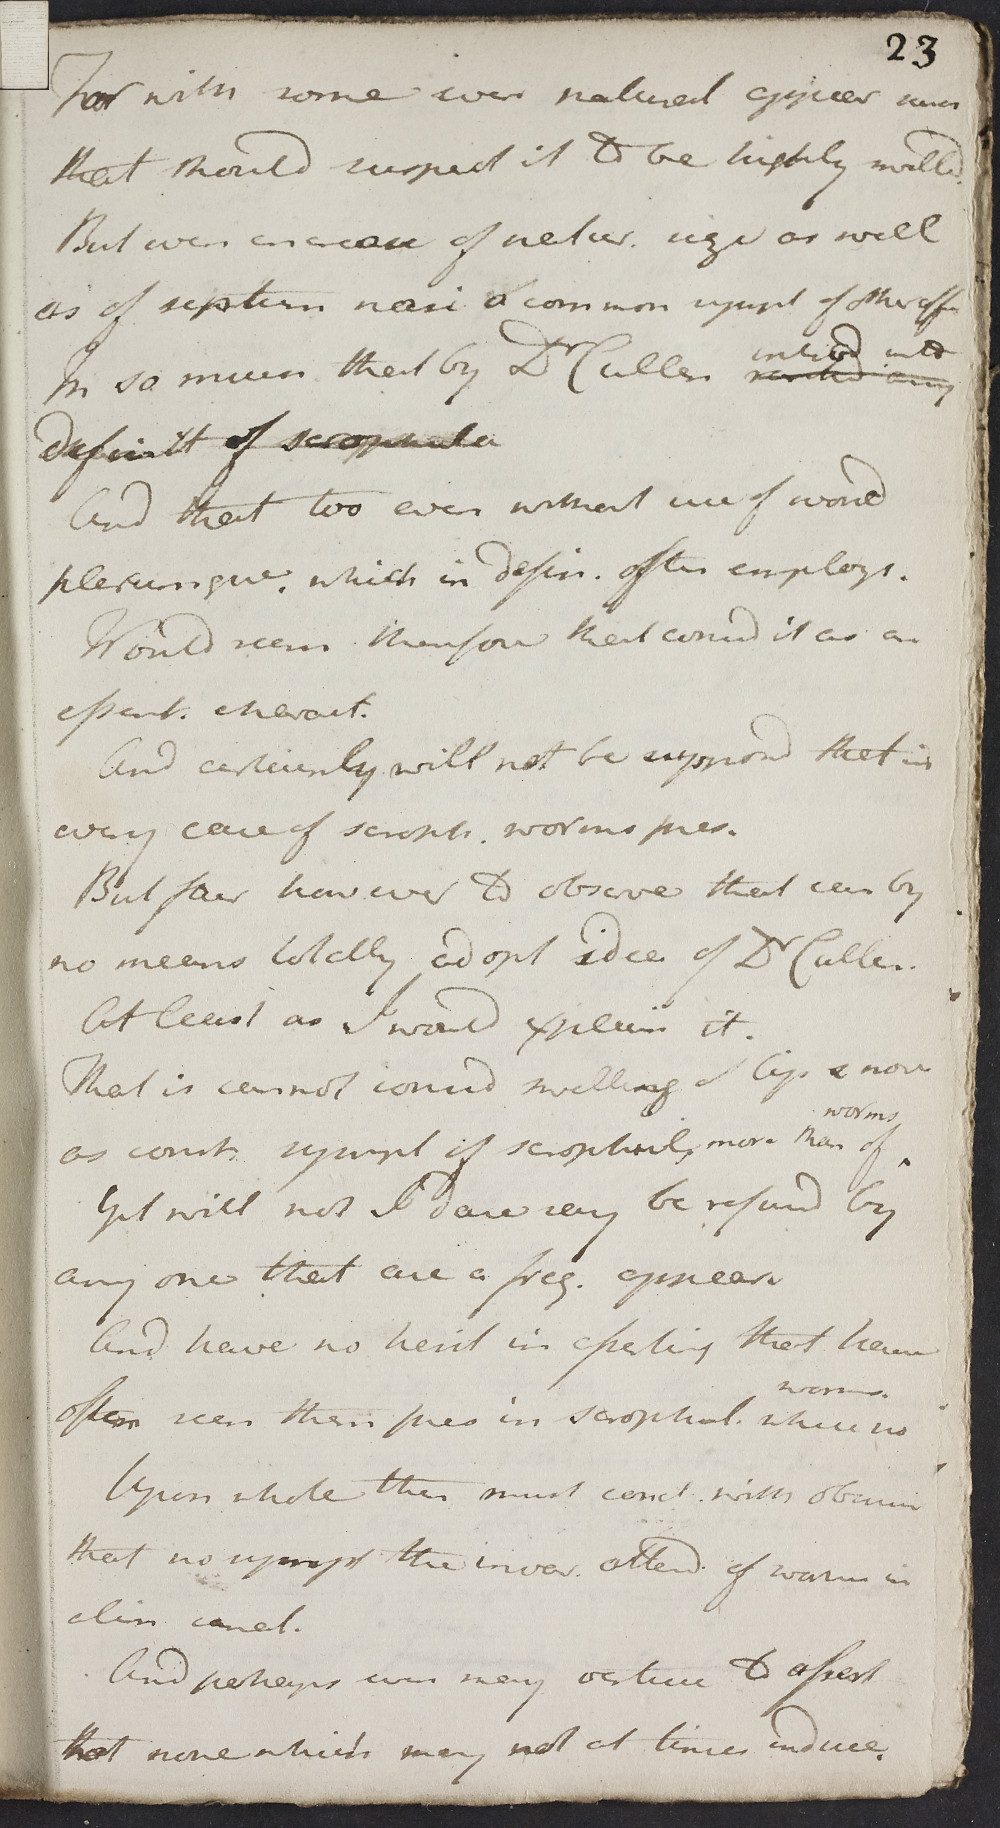 23
For with some even natural appear such
that should suspect it to be highly swelld.
But even increase of natur. size as well
as of septum nasi a common sympt of other aff
In so much that by Dr Cullen introd into
definit of scrophula
And that too even without use of word
plerumque, which in defin. often employs.
Would seem therefore that consid it as an
essent. charact.
And certainly will not be supposd that in
every case of scroph. worms pres.
But fair however to observe that can by
no means totally adopt idea of Dr Cullen.
At least as I would explain it.
That is cannot consid swelling of lips & nose
as const. sympt of scrophul, more than of worms
Yet will not I dare say be refusd by
any one that are a freq. appear.
And have no hesit in asserting that have
often seen them pres in scrophul. where no worms.
Upon whole then must concl. with observing
that no sympt the invar. attend. of worms in
alim canal.
And perhaps even may venture to assert
that none which may not at times induce.